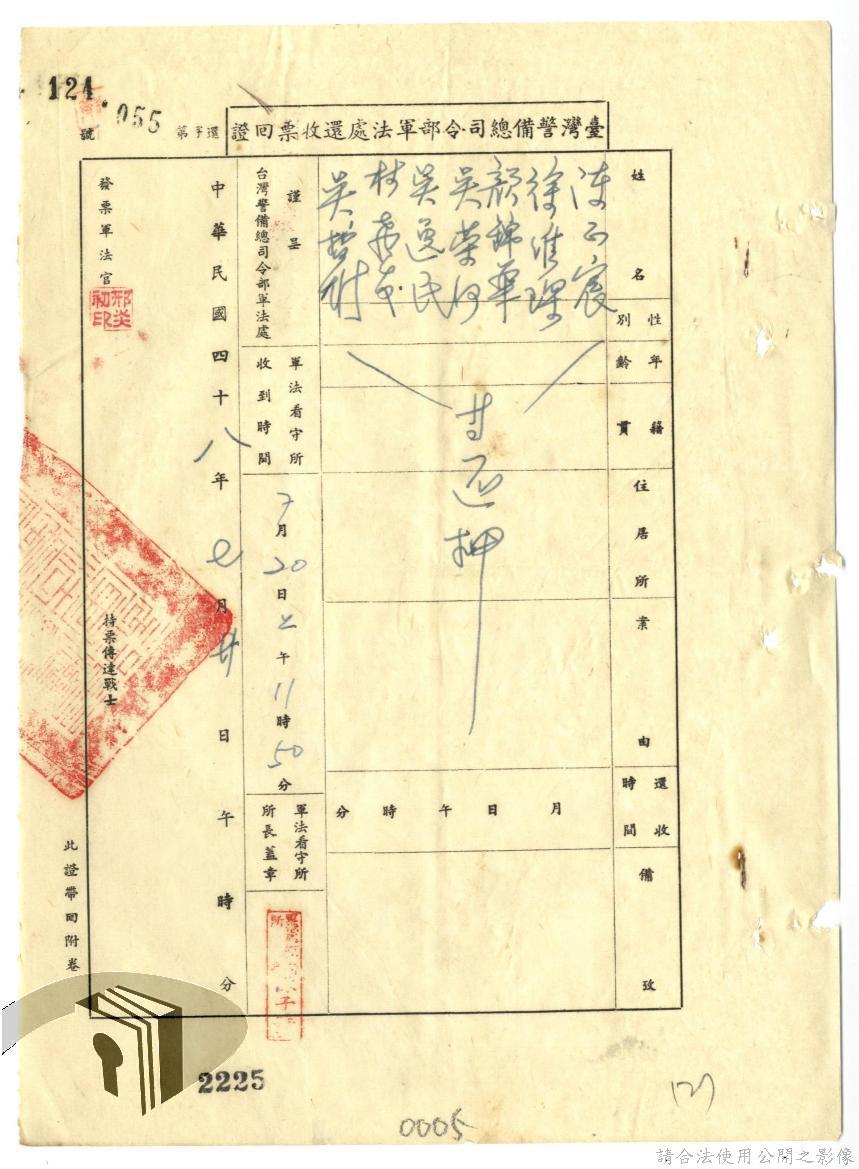 124
055
臺灣警備總司令部軍法處還收票回證
還字第
號
姓名
陳正宸
徐淮琛
顏錦華
吳榮河
吳逸民
林燕
吳哲
性別
年齡
籍貫
住居所
業由
還收時間
月 日 午 時 分
備攷
廿 還押
謹呈
台灣警備總司令部軍法處
軍法看守所
收到時間
7月20日上午11時50分
軍法看守所
所長蓋章
中華民國四十八年七月廿日 午 時 分
發票軍法官
邢炎初印
持票傳達戰士
此證帶回附卷
2225
0005
請合法使用公開之影像